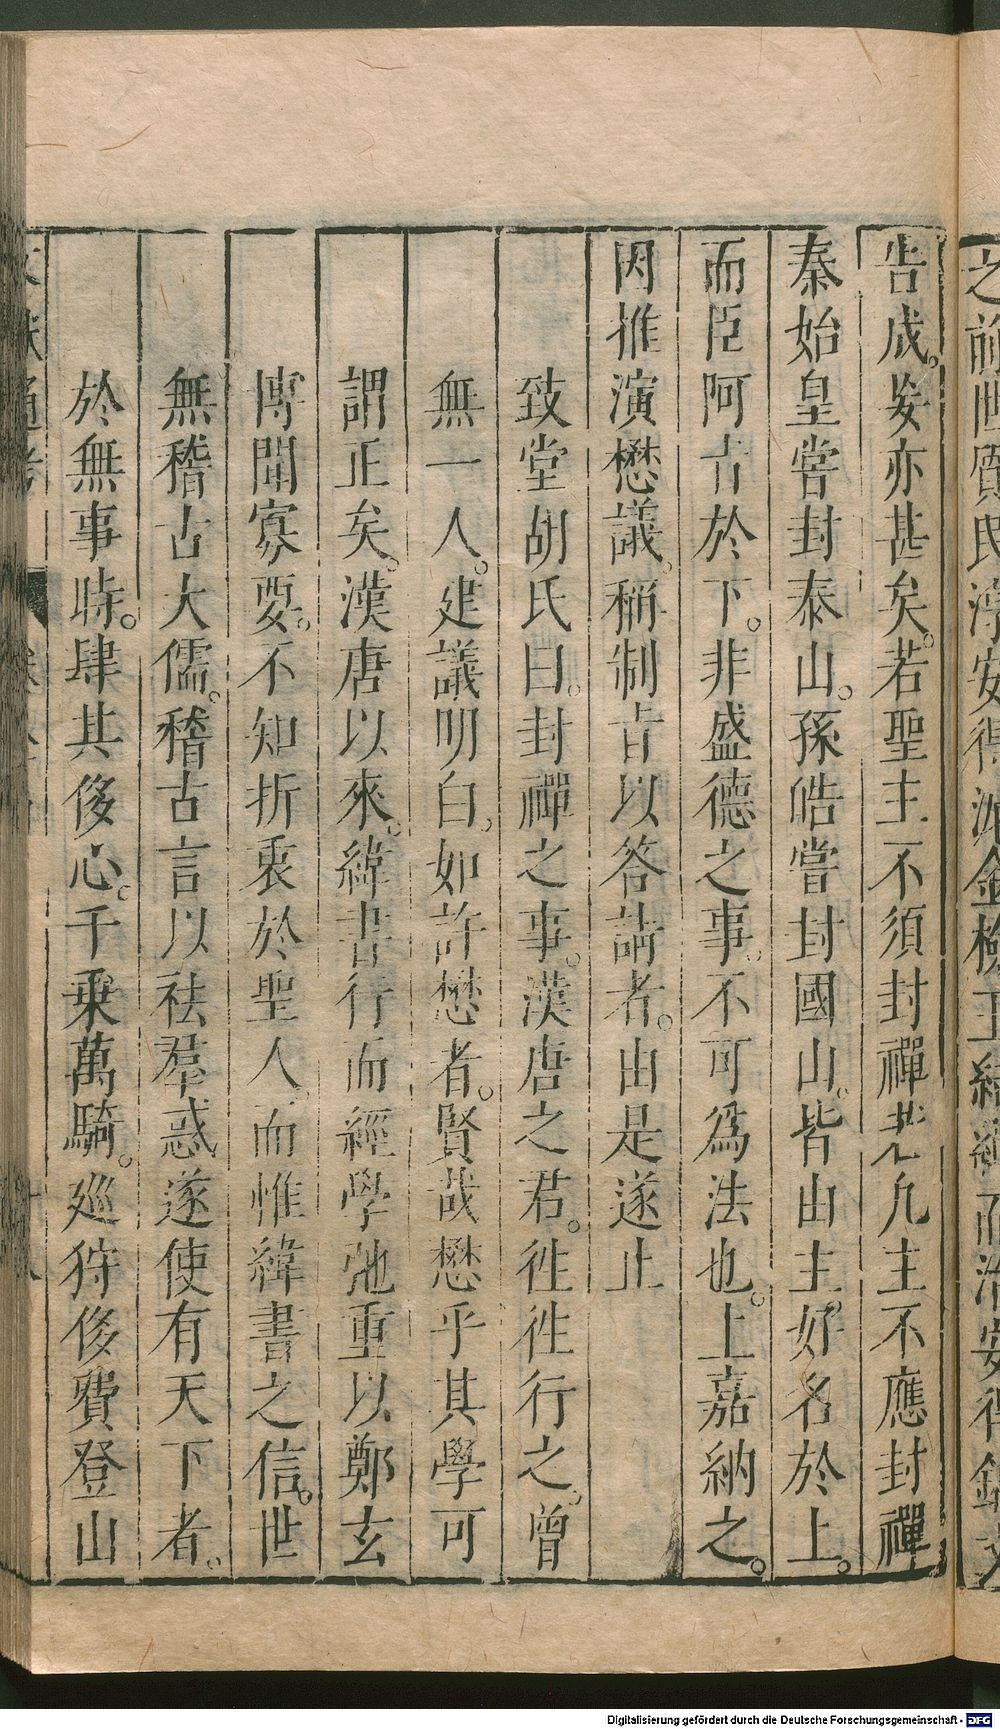 告成。妄亦甚矣。若聖主不須封禪若凡主不應封禪
秦始皇嘗封泰山。孫皓嘗封國山。皆由主好名於上。
而臣阿㫖於下。非盛德之事。不可爲法也。上嘉納之。
因推演懋議。稱制㫖以答請者。由是遂止
致堂胡氏曰。封禪之事。漢唐之君。徃徃行之。曾
無一人。建議明白。如許懋者。賢哉懋乎其學可
謂正矣。漢唐以來。緯書行而經學弛重以鄭玄
博聞寡要。不知折衷於聖人。而惟緯書之信。世
無稽古大儒。稽古言以祛羣惑遂使有天下者。
於無事時。肆其侈心。千乗萬騎。廵狩侈費登山
Digitalisierung gefördert durch die Deutsche Forschungsgemeinschaft - DFG